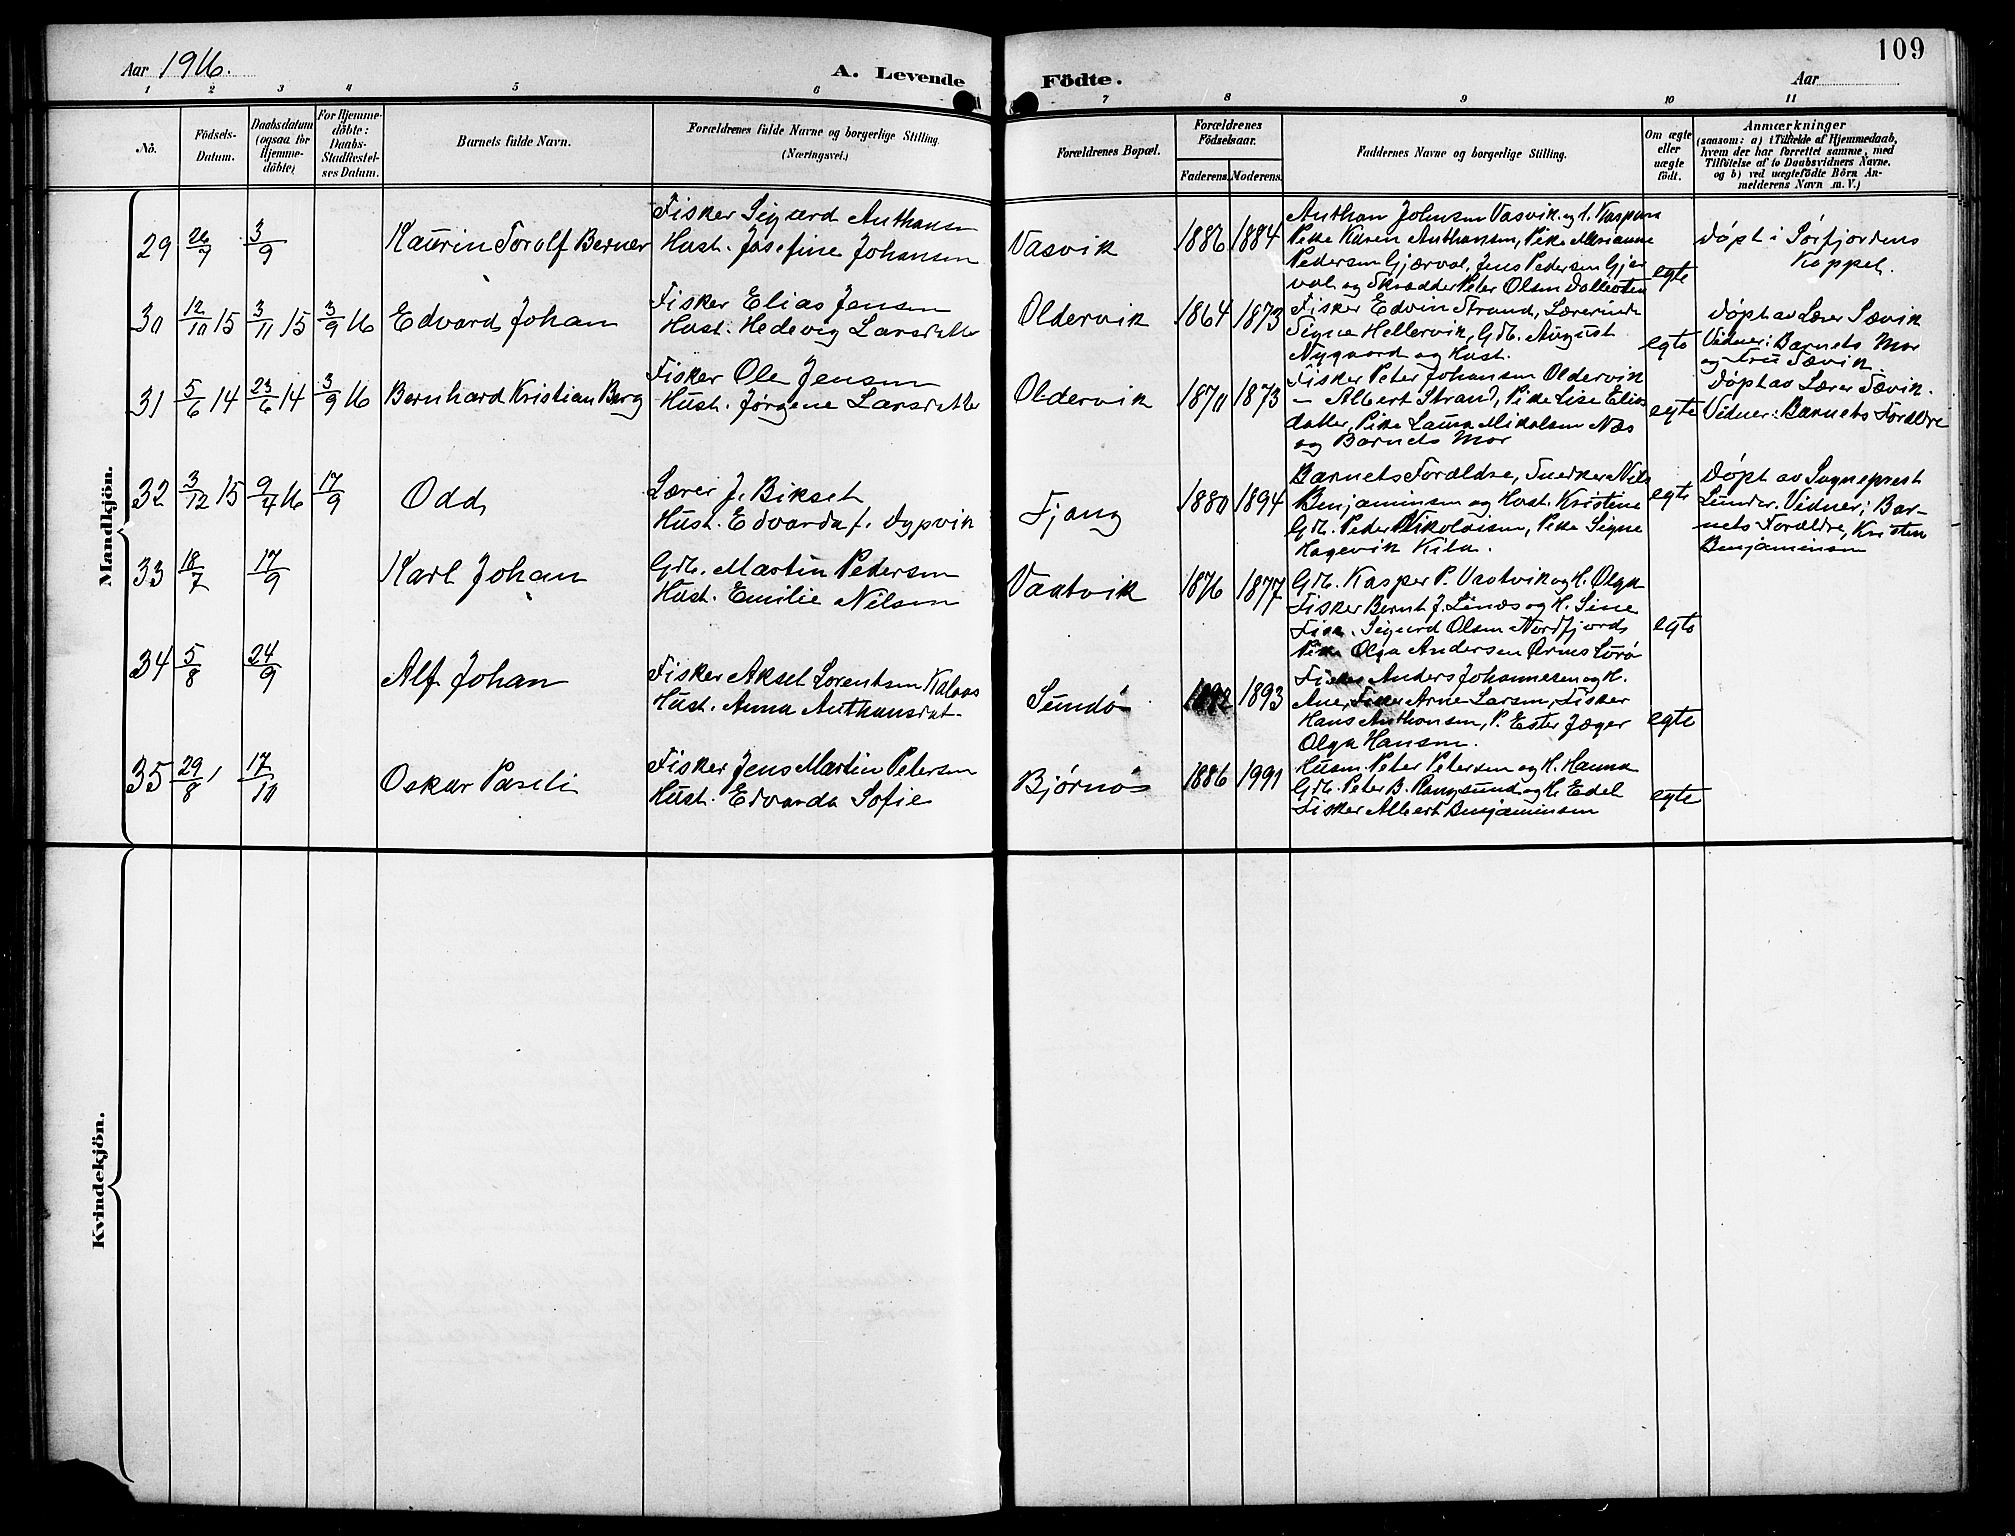 Aar 1916.
A. Levende Födte.
109
Aar
1 2 3 4 5 6 7 8 9 10 11
Nô.
Födsels-
Datum.
Daabsdatum
(ogsaa for
Hjemme-
döbte)
For Hjemme-
döbte:
Daabs-
Stadfæstel-
ses Datum.
Barnets fulde Navn.
Forældrenes fulde Navne og borgerlige Stilling.
(Næringsvei.)
Forældrenes Bopæl.
Forældrenes
Födselsaar.
Faderens. Moderens.
Faddernes Navne og borgerlige Stilling.
Om ægte
eller
uægte
födt.
Anmærkninger
(saasom: a) i Tilfælde af Hjemmedaab,
hvem der har forrettet samme, med
Tilföielse af to Daabsvidners Navne.
og b) ved uægtefödte Börn An-
melderens Navn m. V.)
Mandkjön.
29 26/7 3/9 Kaurin Torolf Berner
Fisker Sigurd Anthonsen
Hust. Josefine Johansen
Vasvik 1886 1884
Anthon Johnsen Vasvik og H. Kaspara
Pike Karen Anthonsen, Pike Marianne
Pedersen Gjærval, Jens Pedersen Gjær
val og Skrædder Peter Olsen
egte
døpt i Sørfjordens
Kappel.
30 12/10 15 3/11 15 3/9 16 Edvard Johan
Fisker Elias Jensen
Hust. Hedevig Larsdatter
Oldervik 1864 1873
Fisker Edvin Strand, Lærerinde
Signe Hellervik, Gdb. August
Nygaard og Hust.
egte
døpt av Lærer Sævik
Vidner: Barnets Mor
og Fru Sævik
31 5/6 14 23/6 14 3/9 16 Bernhard Kristian Berg
Fisker Ole Jensen
Hust. Jørgene Larsdatter
Oldervik 1870 1873
Fisker Peter Johansen Oldervik
— Albert Strand, Pike Lise Elias
datter, Pike Laura Mikalsen Næs
og Barnets Mor
egte
Døpt av Lærer Sævik.
Vidner: Barnets Forældre
32 3/12 15 9/4 16 17/9 Odd
Lærer J. Bikset
Hust. Edvarda f. Dypvik
Fjong 1880 1894
Barnets Forældre, Snedker Nils
Benjaminsen og Hust. Kristine
Gdb. Peder Nikolaisen, Pike Signe
Hagevik Kila.
egte
Døpt av Sogneprest
Lunder. Vidner: Bar-
nets Forældre, Kristen
Benjaminsen
33 18/7 17/9 Karl Johan
Gdb. Martin Pedersen
Hust. Emilie Nilsen
Vaatvik 1876 1877
Gdb. Kasper P. Vaatvik og H. Olga
Fisker Bernt J. Lines og H. Sine
Fisk. Sigurd Olsen Nordfjord
Pike Olga Andersen
egte
34 5/8 24/9 Alf Johan
Fisker Aksel Lorentsen Kalaas
Hust. Anna Anthonsdat-
Sundø 1892 1893
Fisker Anders Johannesen og H.
Ane, Fisker Arne Larsen, Fisker
Hans Anthonsen, P. Ester Jæger
Olga Hansen.
egte
35 29/8 17/10 Oskar Paseli
Fisker Jens Martin Petersen
Hust. Edvarda Sofie
Bjørnøs 1886 1991
Husm. Peter Petersen og H. Hanna
Gdb. Peter B. Rangsund og H. Edel
Fisker Albert Benjaminsen
egte
Kvindekjön.